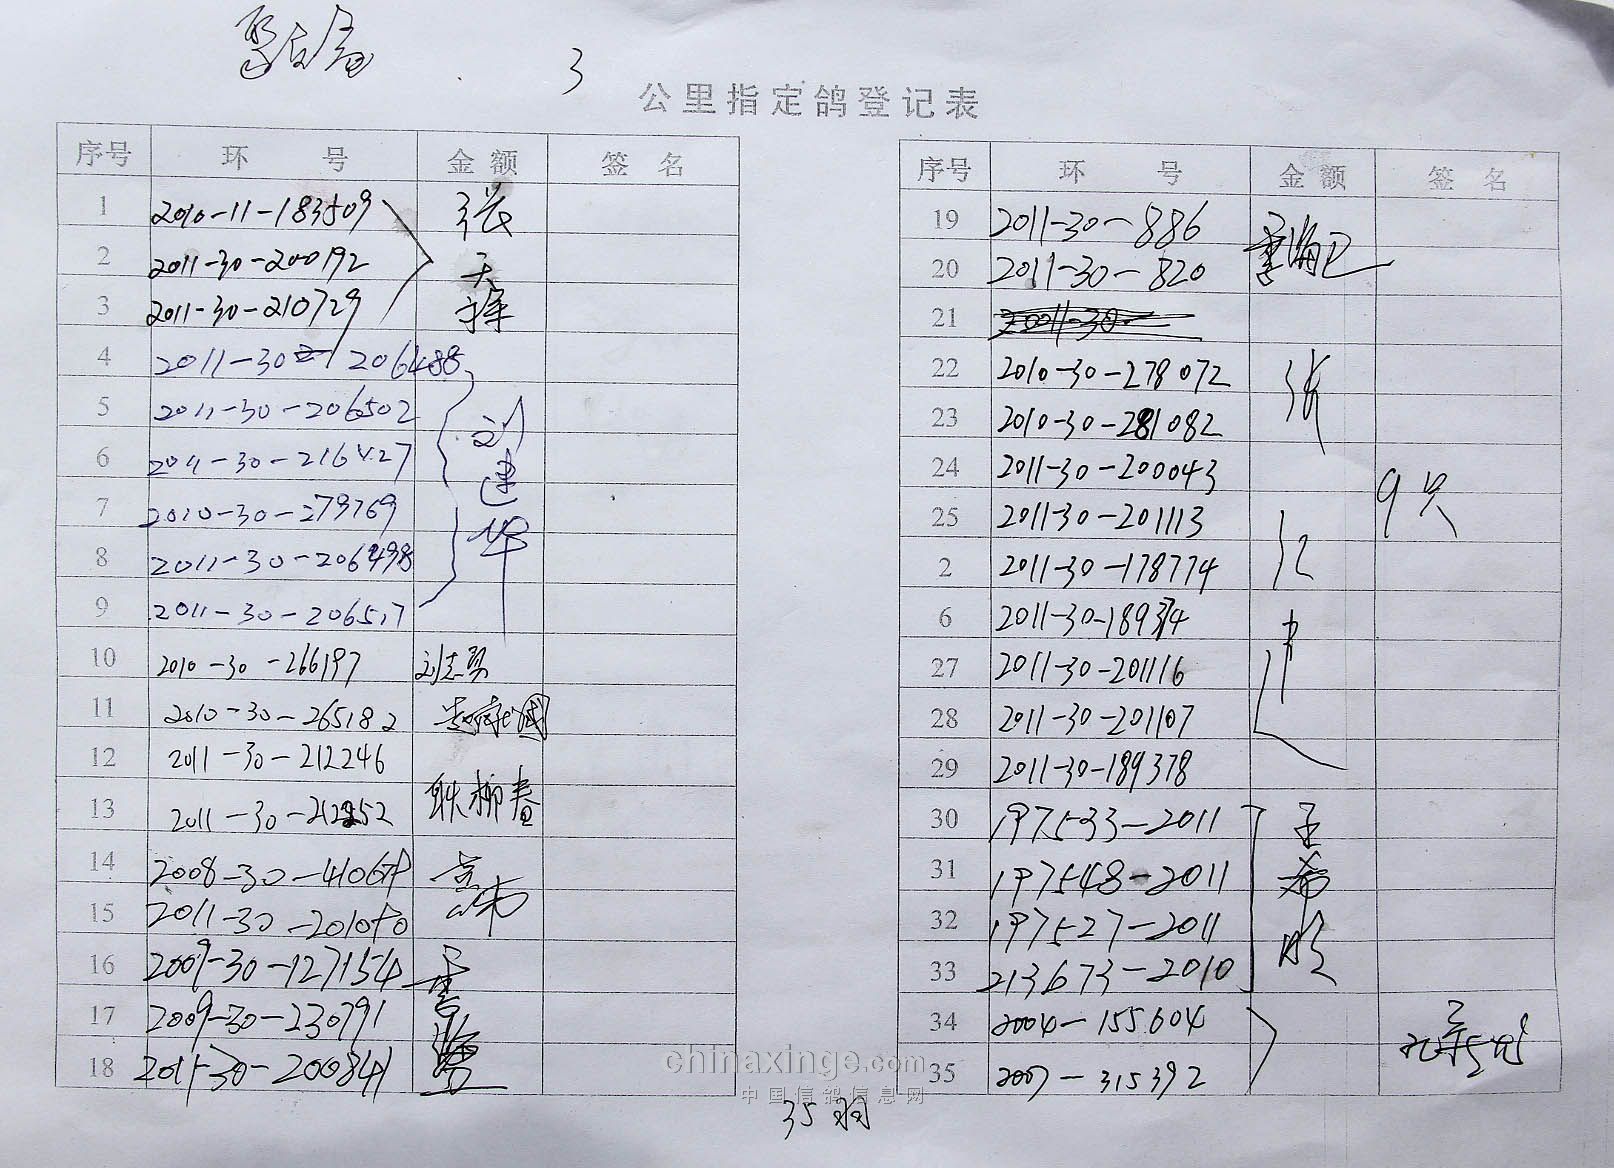 3
公里指定鸽登记表
序号 环 号 金额 签 名
1 2010-11-183509 张
2 2011-30-200192 天
3 2011-30-210729
4 2011-30-206488
5 2011-30-206502 刘
6 2011-30-216427
7 2010-30-279769
8 2011-30-206498 华
9 2011-30-206517
10 2010-30-266197 刘志勇
11 2010-30-265182
12 2011-30-212246
13 2011-30-212252 耿柳春
14
15
16 2009-30-127154
17 2009-30-230791
18 2011-30-200841
序号 环 号 金额 签 名
19 2011-30-886
20 2011-30-820
21 2011-30-
22 2010-30-278072 张
23 2010-30-281082
24 2011-30-200043
25 2011-30-201113 9只
2 2011-30-178774
6 2011-30-189374
27 2011-30-201116
28 2011-30-201107
29 2011-30-189378
30 197533-2011 王
31 197548-2011 希
32 197527-2011
33 213673-2010
34 2004-155604
35 2007-315392
35羽
chinaxinge.com
中国信鸽信息网